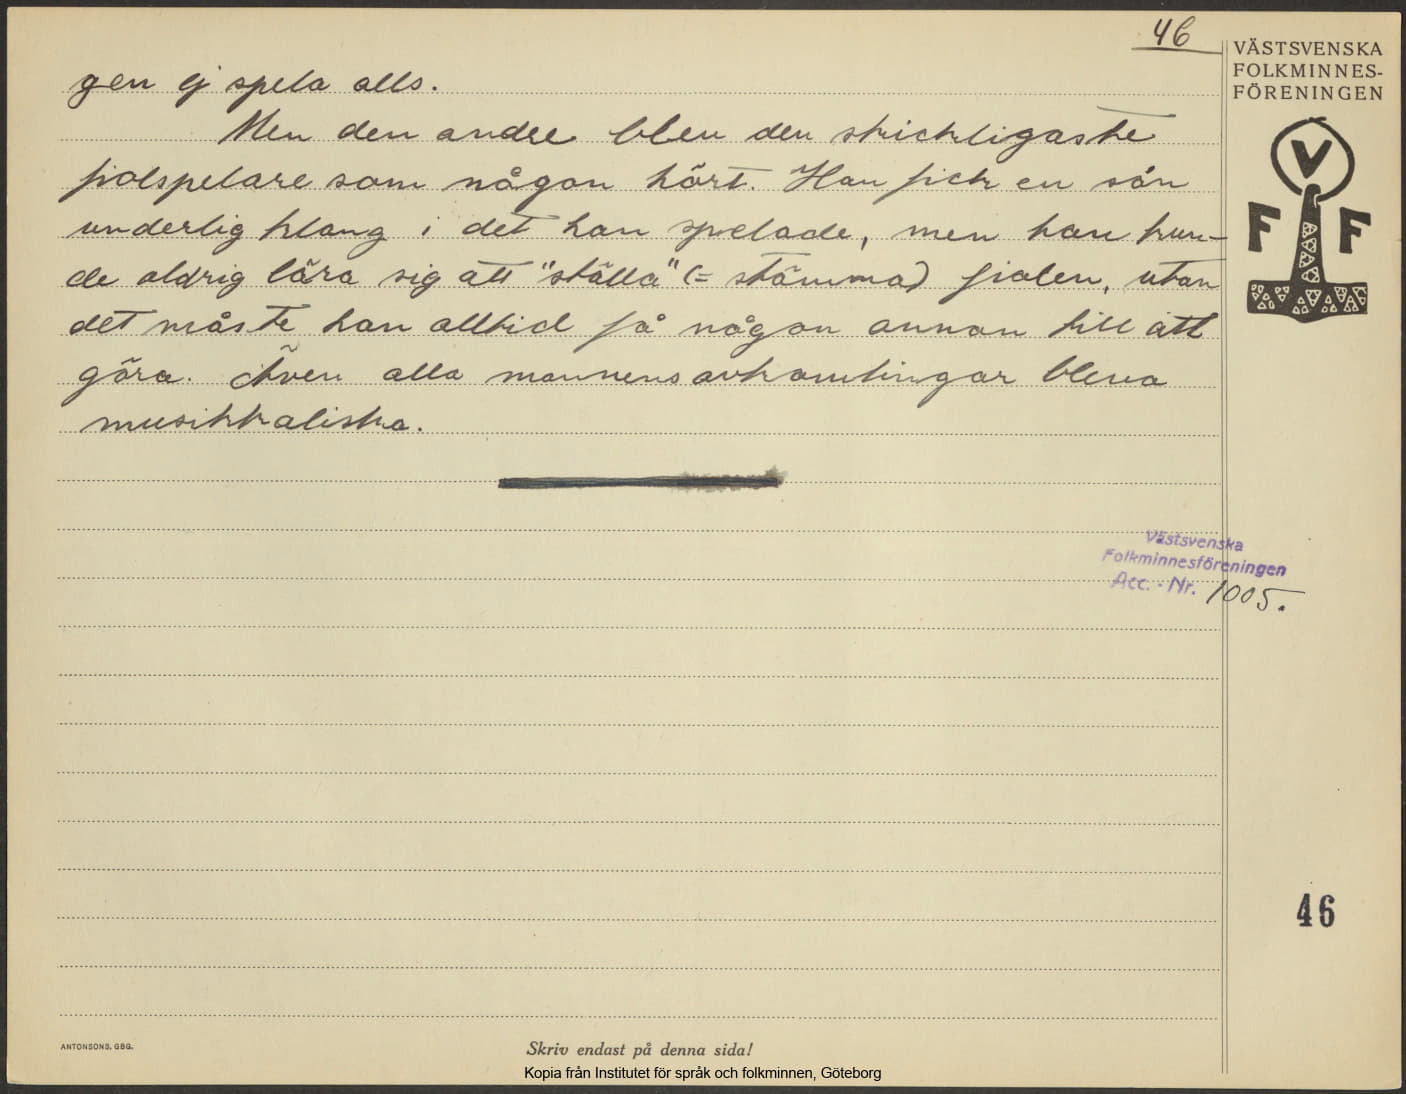 46
VÄSTSVENSKA
FOLKMINNES-
FÖRENINGEN
V
F F
gen ej spela alls.
Men den andre blev den skickligaste
fiolspelare som någon hört. Han fick en sån
underlig klang i det han spelade, men han kun-
de aldrig lära sig att "ställa" (= stämma) fiolen, utan
det måste han alltid få någon annan till att
göra. Även alla mannens avkomlingar bleva
musikkaliska.
Västsvenska
Folkminnesföreningen
Acc. - Nr. 1005.
46
ANTONSONS, GBG.
Skriv endast på denna sida!
Kopia från Institutet för språk och folkminnen, Göteborg